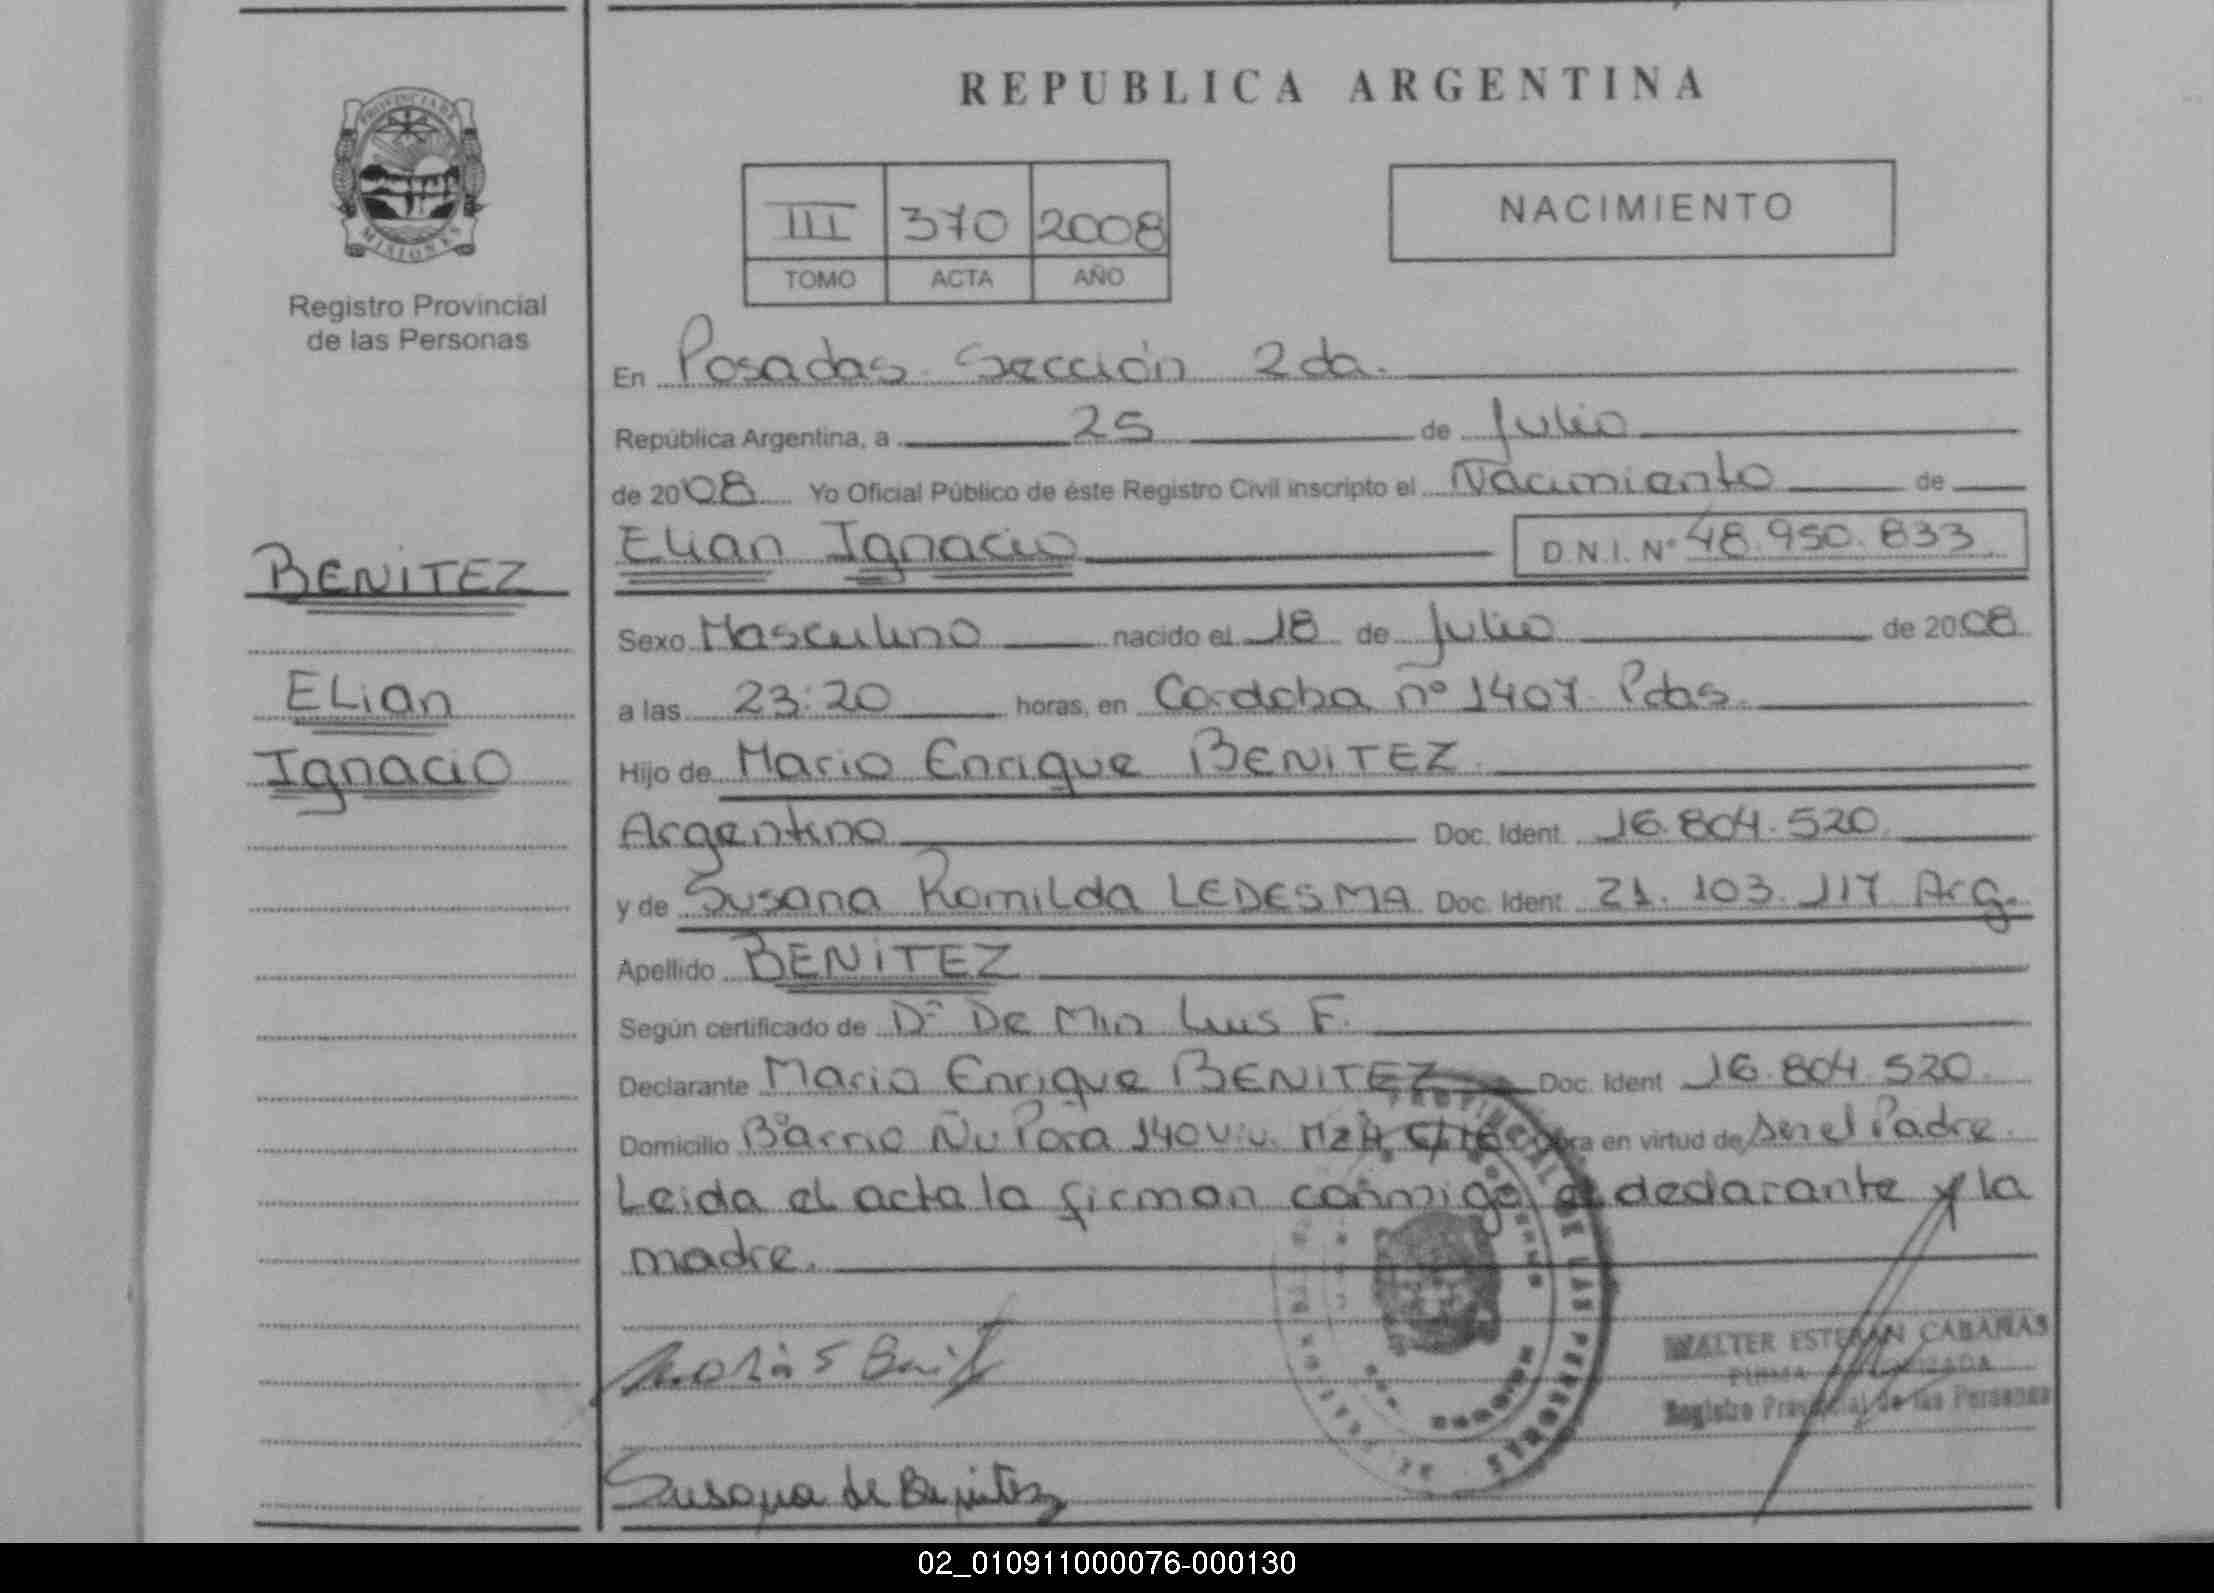 REPUBLICA ARGENTINA
PROVINCIA DE
MISIONES
Registro Provincial
de las Personas
III 370 2008
TOMO ACTA AÑO
NACIMIENTO
En Posadas Sección 2da.
República Argentina, a 25 de Julio
de 2008 Yo Oficial Público de éste Registro Civil inscripto el Nacimiento de
BENITEZ
Elian
Ignacio
Elian Ignacio D.N.I. Nº 48.950.833
Sexo Masculino nacido el 18 de Julio de 2008
a las 23:20 horas, en Cordoba nº 1407 Pdas.
Hijo de Mario Enrique BENITEZ
Argentino Doc. Ident. 16.804.520
y de Susana Romilda LEDESMA Doc. Ident. 21.103.117 Arg.
Apellido BENITEZ
Según certificado de Dr De Min Luis F.
Declarante Mario Enrique BENITEZ Doc. Ident 16.804.520
Domicilio Bº Barrio Ñu Pora 140 Viv. Mz H en virtud de Ser el Padre
Leida el acta la firman conmigo el declarante y la
madre.
WALTER ESTEBAN CABAÑAS
FIRMA AUTORIZADA
Registro Provincial de las Personas
Susana de Benitez
02_010911000076-000130